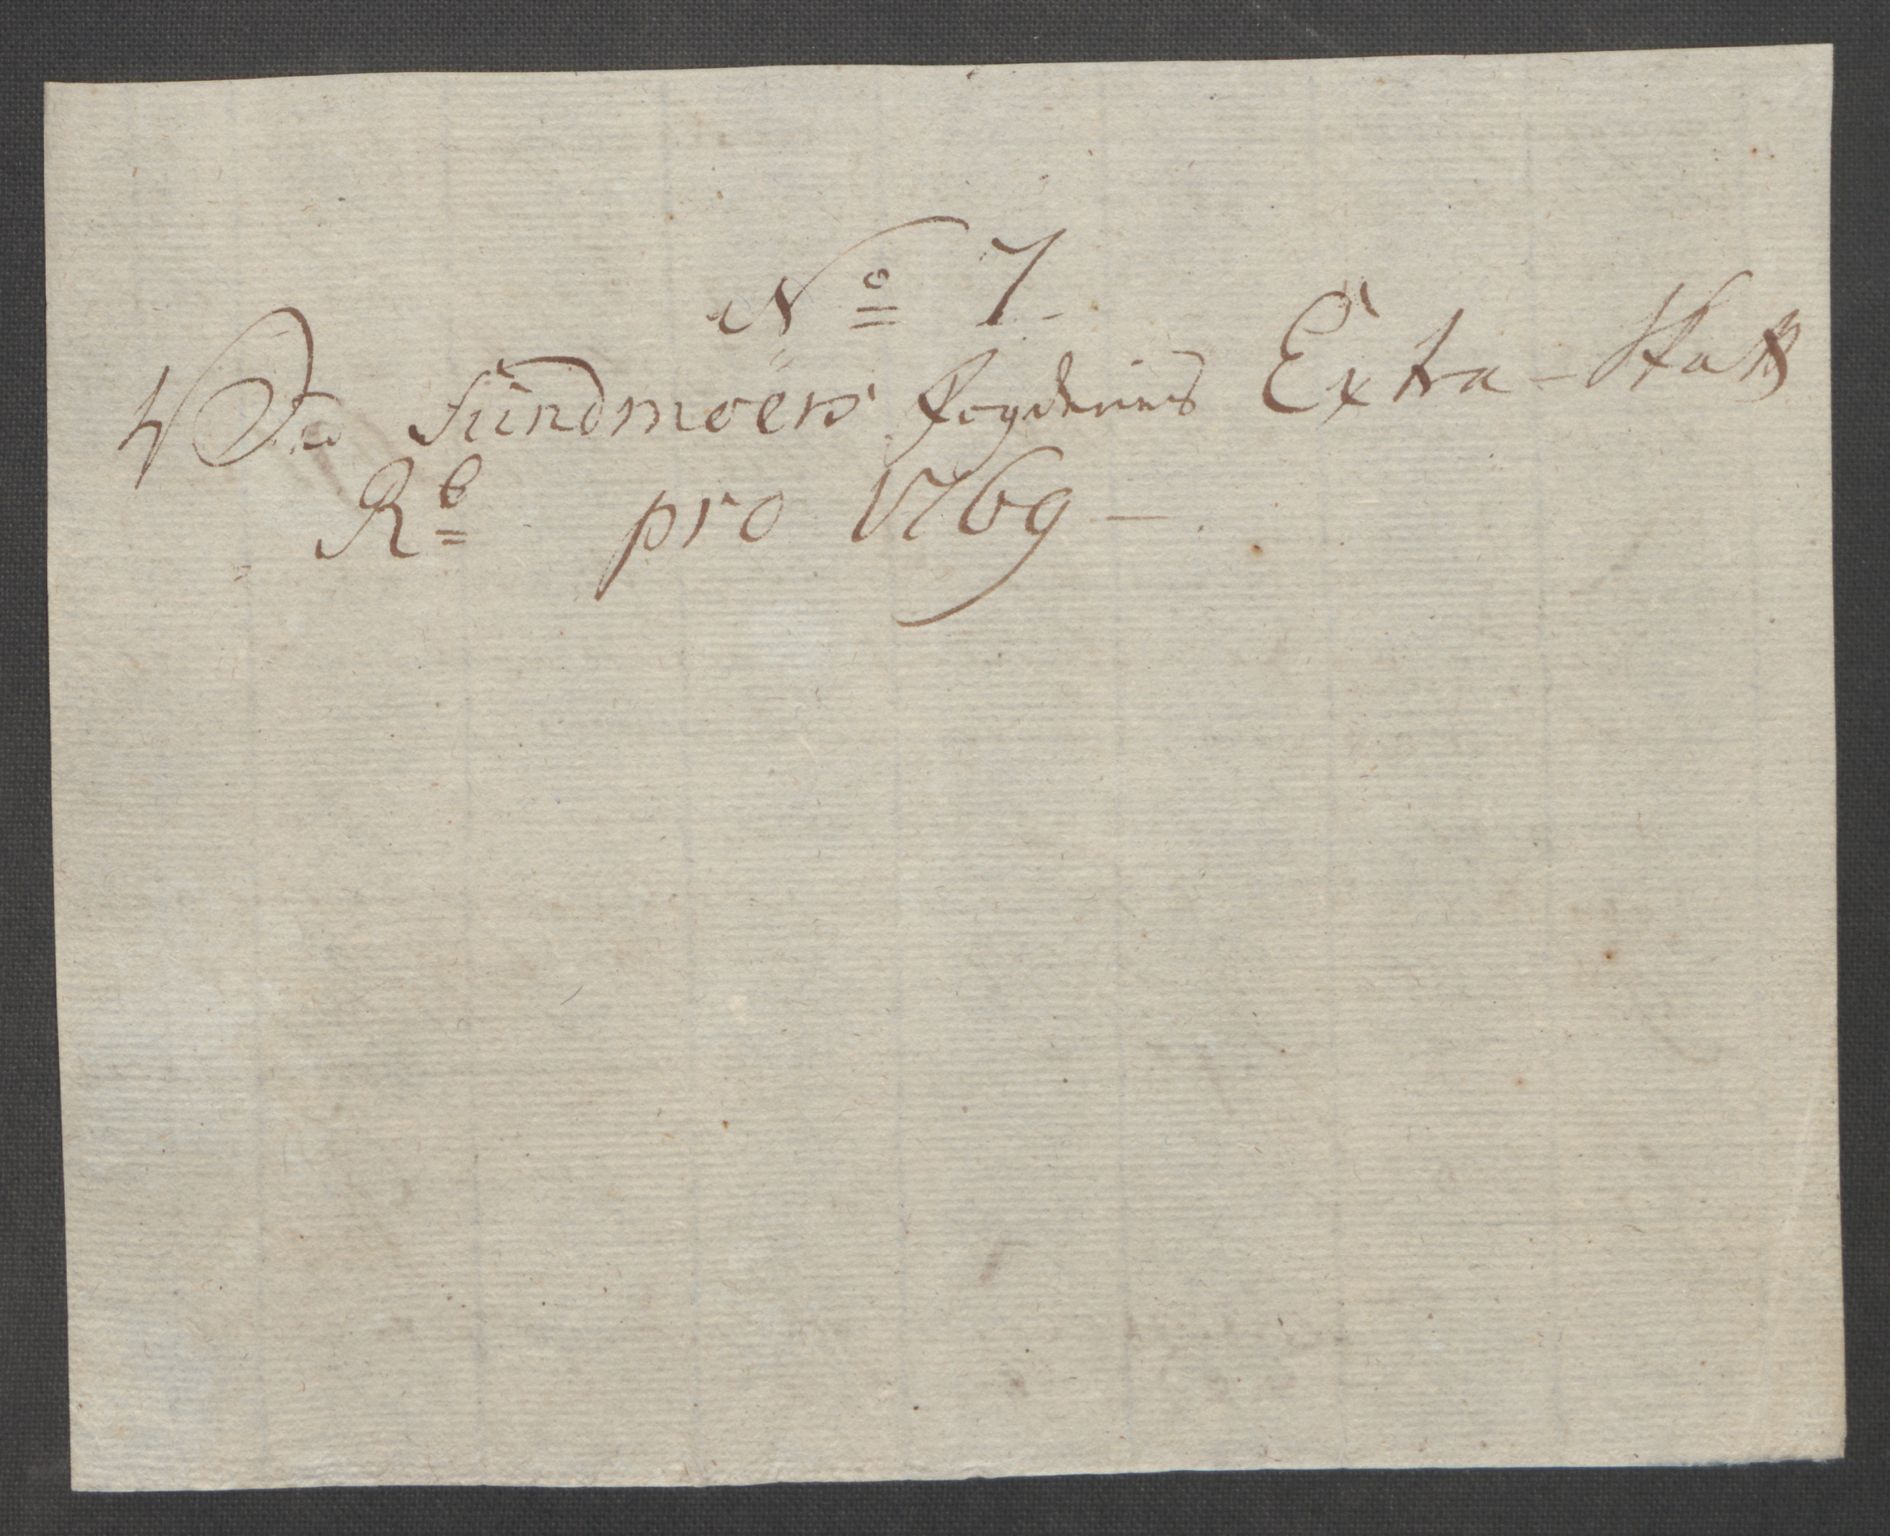 No 7.
Ved Sundmöers Fogderies Extra-Skatts
Rb pro 1769.